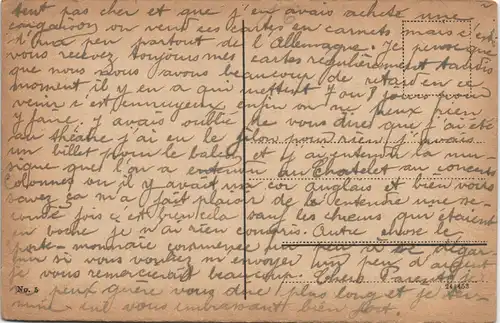 tent pas cher et que j'en avais acheté une
cargaison on vend ces cartes en carnets mais c'est
d'un peu partout de l'Allemagne. Je pense que
vous recevez toujours mes cartes régulièrement tandis
que nous nous avons beaucoup de retard en ce
moment il y en a qui mettent 7 ou 8 jours pour
venir c'est ennuyeux enfin on ne peux rien
y faire. J'avais oublié de vous dire que j'ai été
au théâtre j'ai eu le filon pour rien j'avais
un billet pour le balcon et j'ai entendu la mu-
sique que l'on a entendu au Chatelet au concerts
Colonnes où il y avait un cor anglais et bien vous
savez ça m'a fait plaisir de la entendre une se-
conde fois c'est bien cela sauf les chœurs qui étaient
en boche je n'ai rien compris. Autre chose le
porte-monnaie commence un peu à se dégar-
nir si vous vouliez m'envoyer un peu d'argent
je vous remercierait beaucoup. Chers Parents je
ne peux guère vous dire plus long et je ter-
mine en vous embrassant bien fort.
No. 5
244453